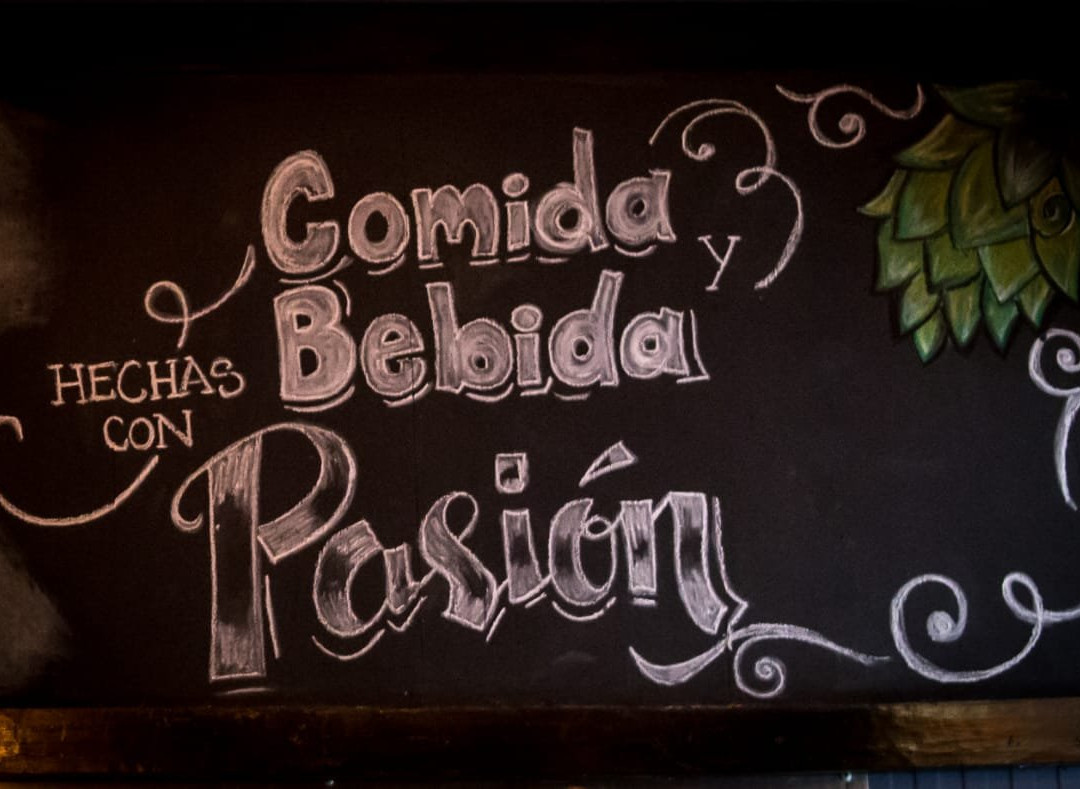 Comida y
Bebida
HECHAS
CON
Pasión